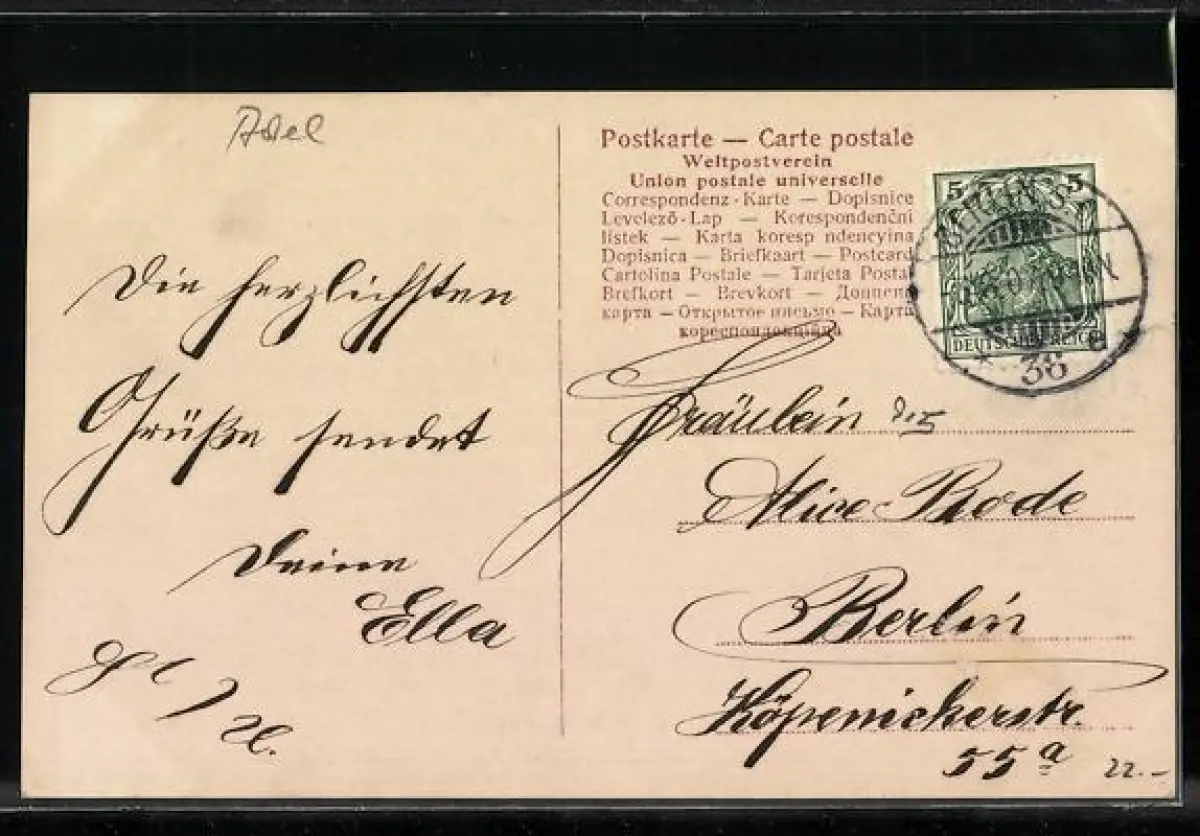 Adel
Die herzlichsten
Grüße sendet
Deine
Ella
Postkarte — Carte postale
Weltpostverein
Union postale universelle
Correspondenz-Karte — Dopisnice
Levelező-Lap — Korespondenční
lístek — Karta koresp ndencyina
Dopisnica — Briefkaart — Postcard
Cartolina Postale — Tarjeta Postal
Brefkort — Brevkort — Дописна
карта — Открытое письмо — Карта
кореспонденційна
5 5
DEUTSCHES REICH
BERLIN S.
* 36
Fräulein
Alice Rode
Berlin
Köpenickerstr.
55 a
22.-